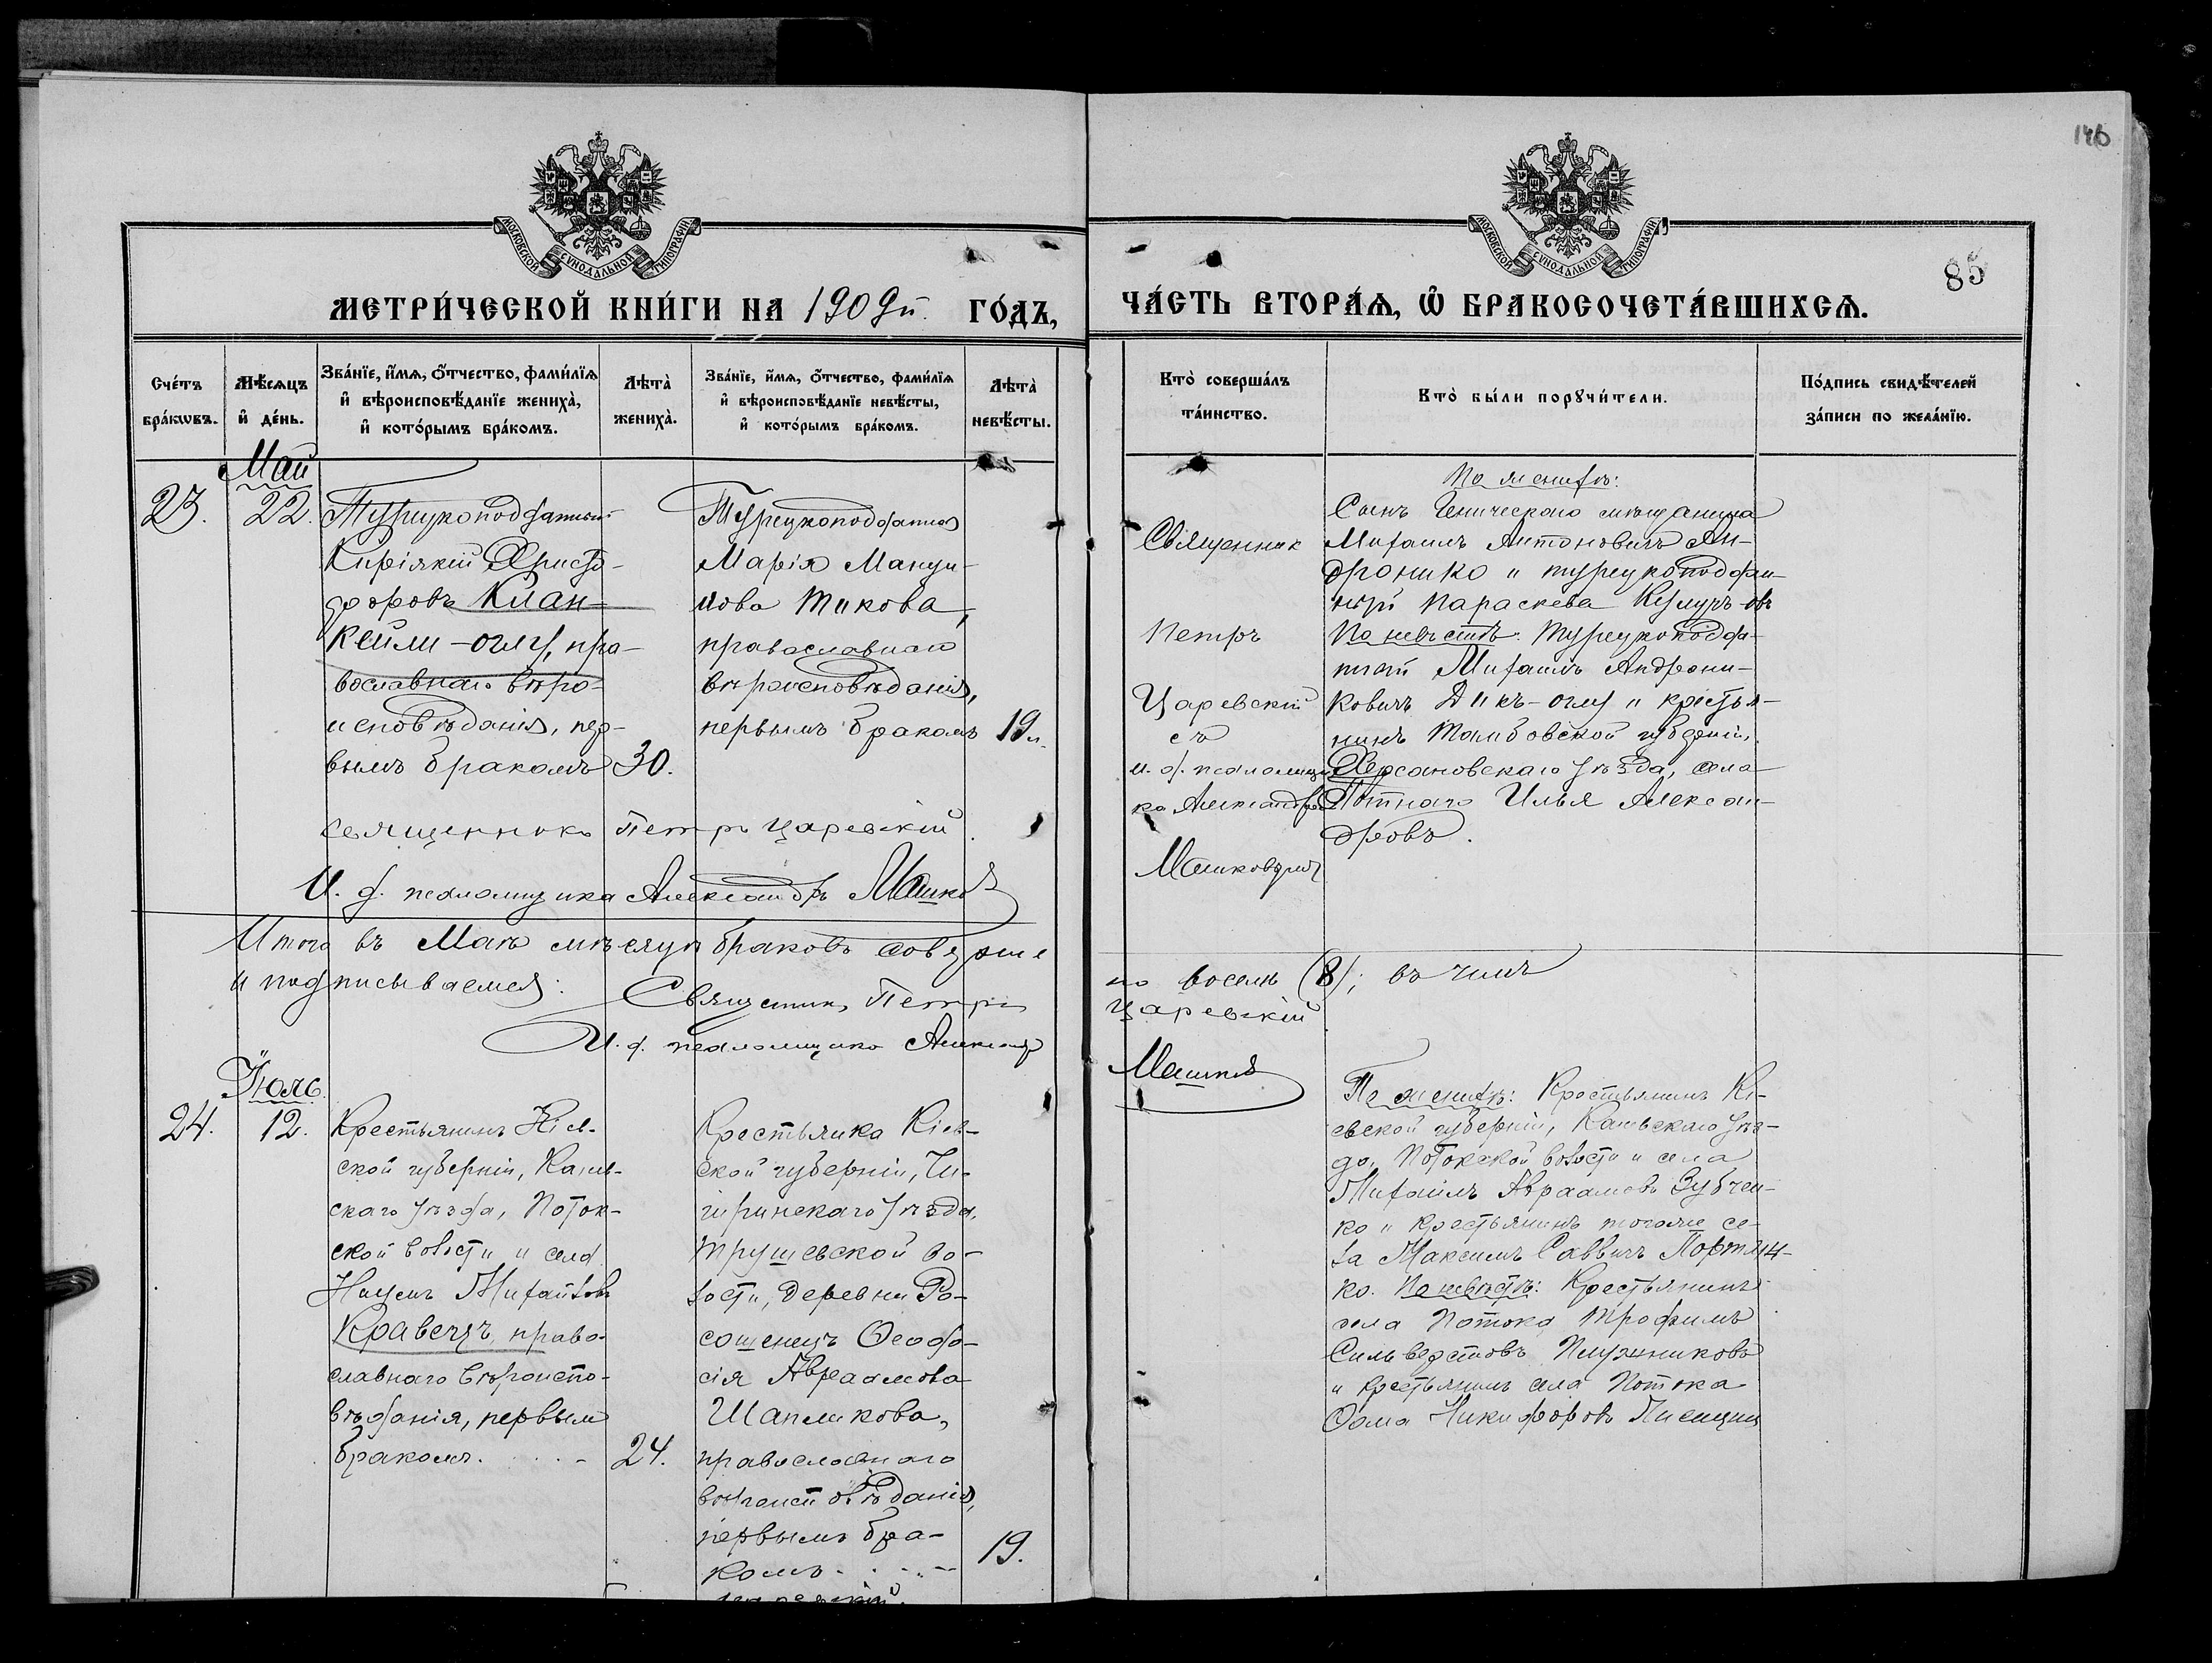 146
85
МОСКОВСКОЙ СУНОДАЛЬНОЙ ТИПОГРАФІИ
МОСКОВСКОЙ СУНОДАЛЬНОЙ ТИПОГРАФІИ
МЕТРИ́ЧЕСКОЙ КНИ́ГИ НА 1909й. ГО́ДЪ,
ЧА́СТЬ ВТОРА́Ѧ, Ѡ҆ БРАКОСОЧЕТА́ВШИХСѦ.
Сче́тъ бра́кѡвъ.
Мѣ́сѧцъ и҆ де́нь.
Зва́нїе, и҆́мѧ, ѻ҆́тчество, фами́лїѧ
и҆ вѣроисповѣ́данїе жениха̀,
и҆ кото́рымъ бра́комъ.
Лѣ́та̀ жениха̀.
Зва́нїе, и҆́мѧ, ѻ҆́тчество, фами́лїѧ
и҆ вѣроисповѣ́данїе невѣ́сты,
и҆ кото́рымъ бра́комъ.
Лѣ́та̀ невѣ́сты.
Кто̀ соверша́лъ
та́инство.
Кто̀ бы́ли порꙋчи́тели.
По́дпись свидѣ́телей
за́писи по жела́нїю.
Май
23.
22.
Турецкоподданный
Киріякій Христо-
доровъ Клан-
кейли-оглу, пра-
вославнаго вѣро-
исповѣданія, пер-
вымъ бракомъ
30.
Турецкоподданная
Марія Мануи-
лова Такова,
православнаго
вѣроисповѣданія,
первымъ бракомъ
19 л.
Священникъ Петръ Царевскій.
И. д. псаломщика Александръ Машковъ
Священникъ
Петръ
Царевскій
съ
и. д. псаломщи-
ка Александро
Машковымъ
По женихѣ:
Сынъ Геническаго мѣщанина
Михаилъ Антоновичъ Ан-
дронико и турецкоподдан-
ный Параскева
По невѣстѣ: Турецкоподда-
нный Михаилъ Андрони-
ковичъ Дикъ-оглу и крестья-
нинъ Тамбовской губерніи,
Херсановскаго уѣзда, села
Илья Алексан-
дровъ.
Итого въ Маѣ мѣсяцѣ браковъ соверше
но восемь (8); въ чемъ
и подписываемся:
Священникъ Петръ
Царевскій
И. д. псаломщика Александр
Машковъ
Іюль
24.
12.
Крестьянинъ Кіев-
ской губерніи, Канев-
скаго уѣзда, Поток-
ской волости и села
Наумъ Михайловъ
Кравецъ, право-
славнаго вѣроиспо-
вѣданія, первымъ
бракомъ.
24.
Крестьянка Кіев-
ской губерніи, Чи-
гиринскаго уѣзда,
Трушевской во-
лости, деревни Ро-
сошенецъ Ѳеодо-
сія Авраамова
Шапликова,
православнаго
вѣроисповѣданія,
первымъ бра-
комъ
19.
По женихѣ: Крестьянинъ Кі-
евской губерніи, Каневскаго уѣз-
да, Потокской волости и села
Михаилъ Авраамовъ Зубчен-
ко и крестьянинъ тогоже се-
ла Максимъ Саввичъ Портян-
ко. По невѣстѣ: Крестьянинъ
села Потока Трофимъ
Сильверстовъ Плужниковъ
и крестьянинъ села Потока
Ѳома Никифоровъ